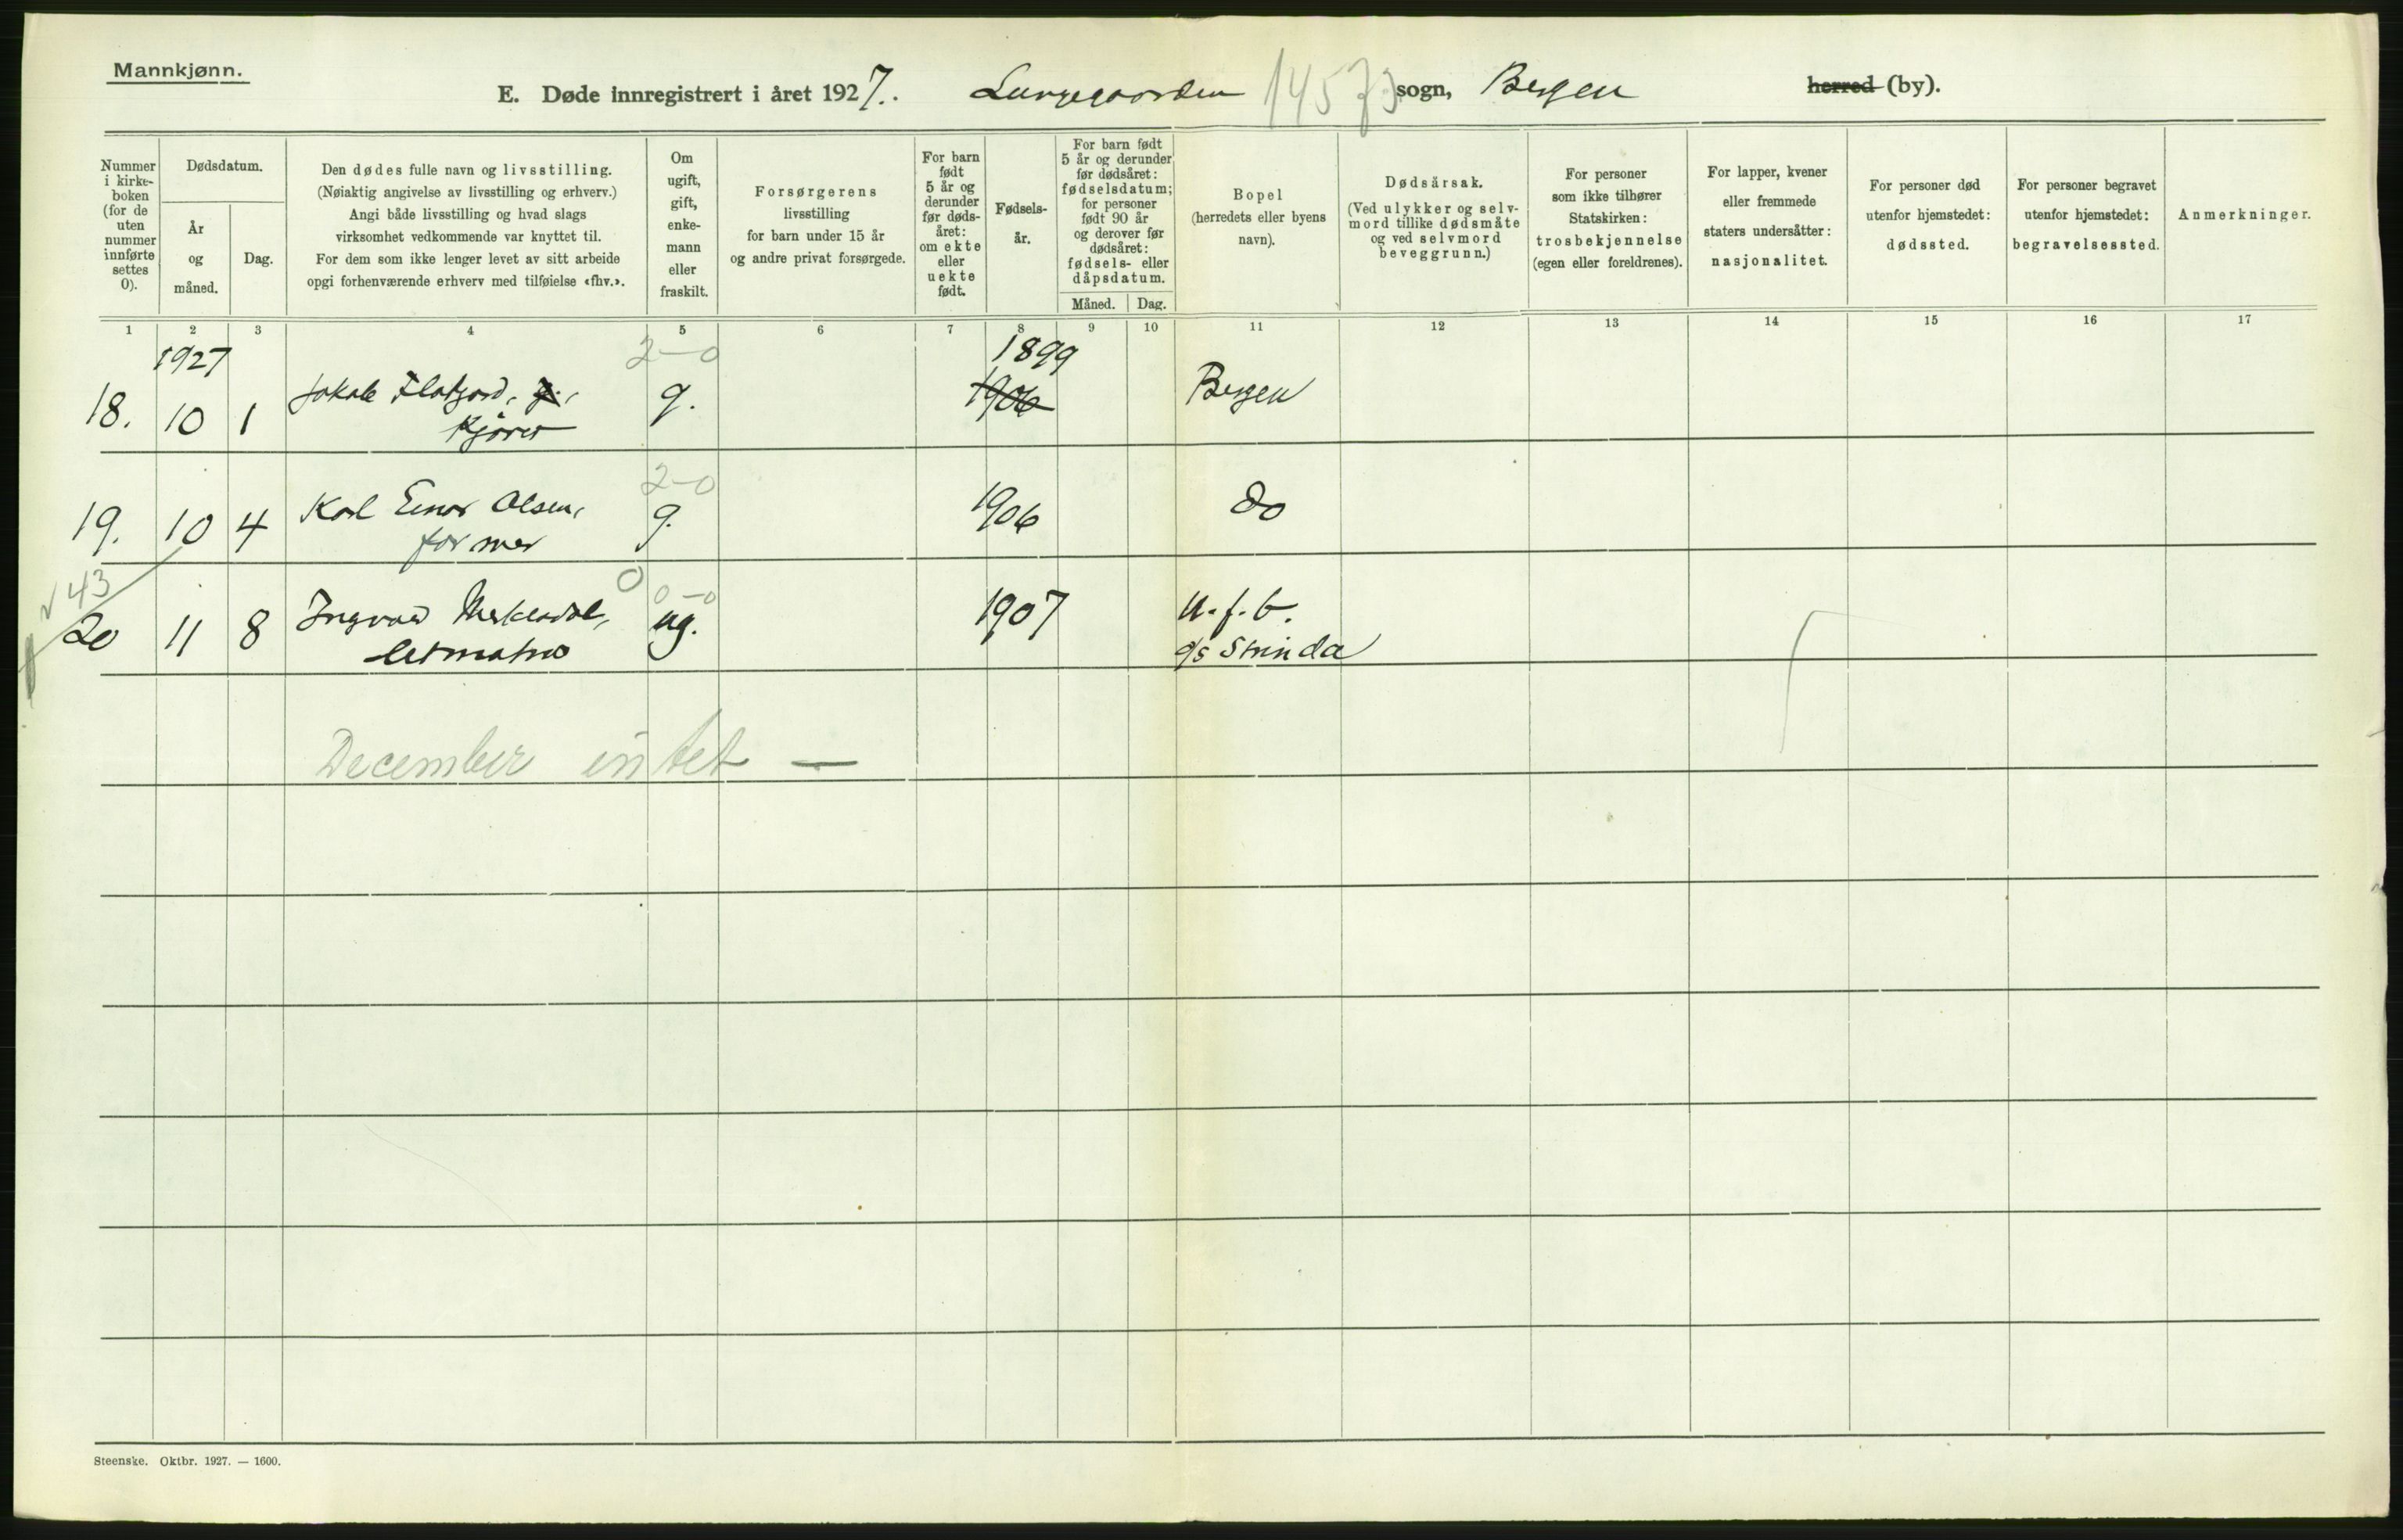 Mannkjønn.
E. Døde innregistrert i året 1927. Lungegaarden 14573 sogn, Bergen herred (by).
Nummer i kirke-boken (for de uten nummer innførte settes 0).
Dødsdatum.
År og måned.
Dag.
Den dødes fulle navn og livsstilling.
(Nøiaktig angivelse av livsstilling og erhverv.)
Angi både livsstilling og hvad slags
virksomhet vedkommende var knyttet til.
For dem som ikke lenger levet av sitt arbeide
opgi forhenværende erhverv med tilføielse «fhv.».
Om ugift, gift, enke-mann eller fraskilt.
Forsørgerens
livsstilling
for barn under 15 år
og andre privat forsørgede.
For barn født 5 år og derunder før døds-året: om ekte eller uekte født.
Fødsels-år.
For barn født 5 år og derunder før dødsåret: fødselsdatum; for personer født 90 år og derover før dødsåret: fødsels- eller dåpsdatum.
Måned. Dag.
Bopel
(herredets eller byens
navn).
Dødsårsak.
(Ved ulykker og selv-
mord tillike dødsmåte
og ved selvmord
beveggrunn.)
For personer
som ikke tilhører
Statskirken:
trosbekjennelse
(egen eller foreldrenes).
For lapper, kvener
eller fremmede
staters undersåtter:
nasjonalitet.
For personer død
utenfor hjemstedet:
dødssted.
For personer begravet
utenfor hjemstedet:
begravelsessted.
Anmerkninger.
1 2 3 4 5 6 7 8 9 10 11 12 13 14 15 16 17
1927 2-0 1899
18. 10 1 Jakob g. 1906 Bergen
Kjører
2-0
19. 10 4 Karl Einar Olsen, g. 1906 do
former
43 0 0-0
20 11 8 Ingvald ug. 1907 u.f.b.
letmatros d/s Strinda
December intet —
Steenske. Oktbr. 1927. — 1600.